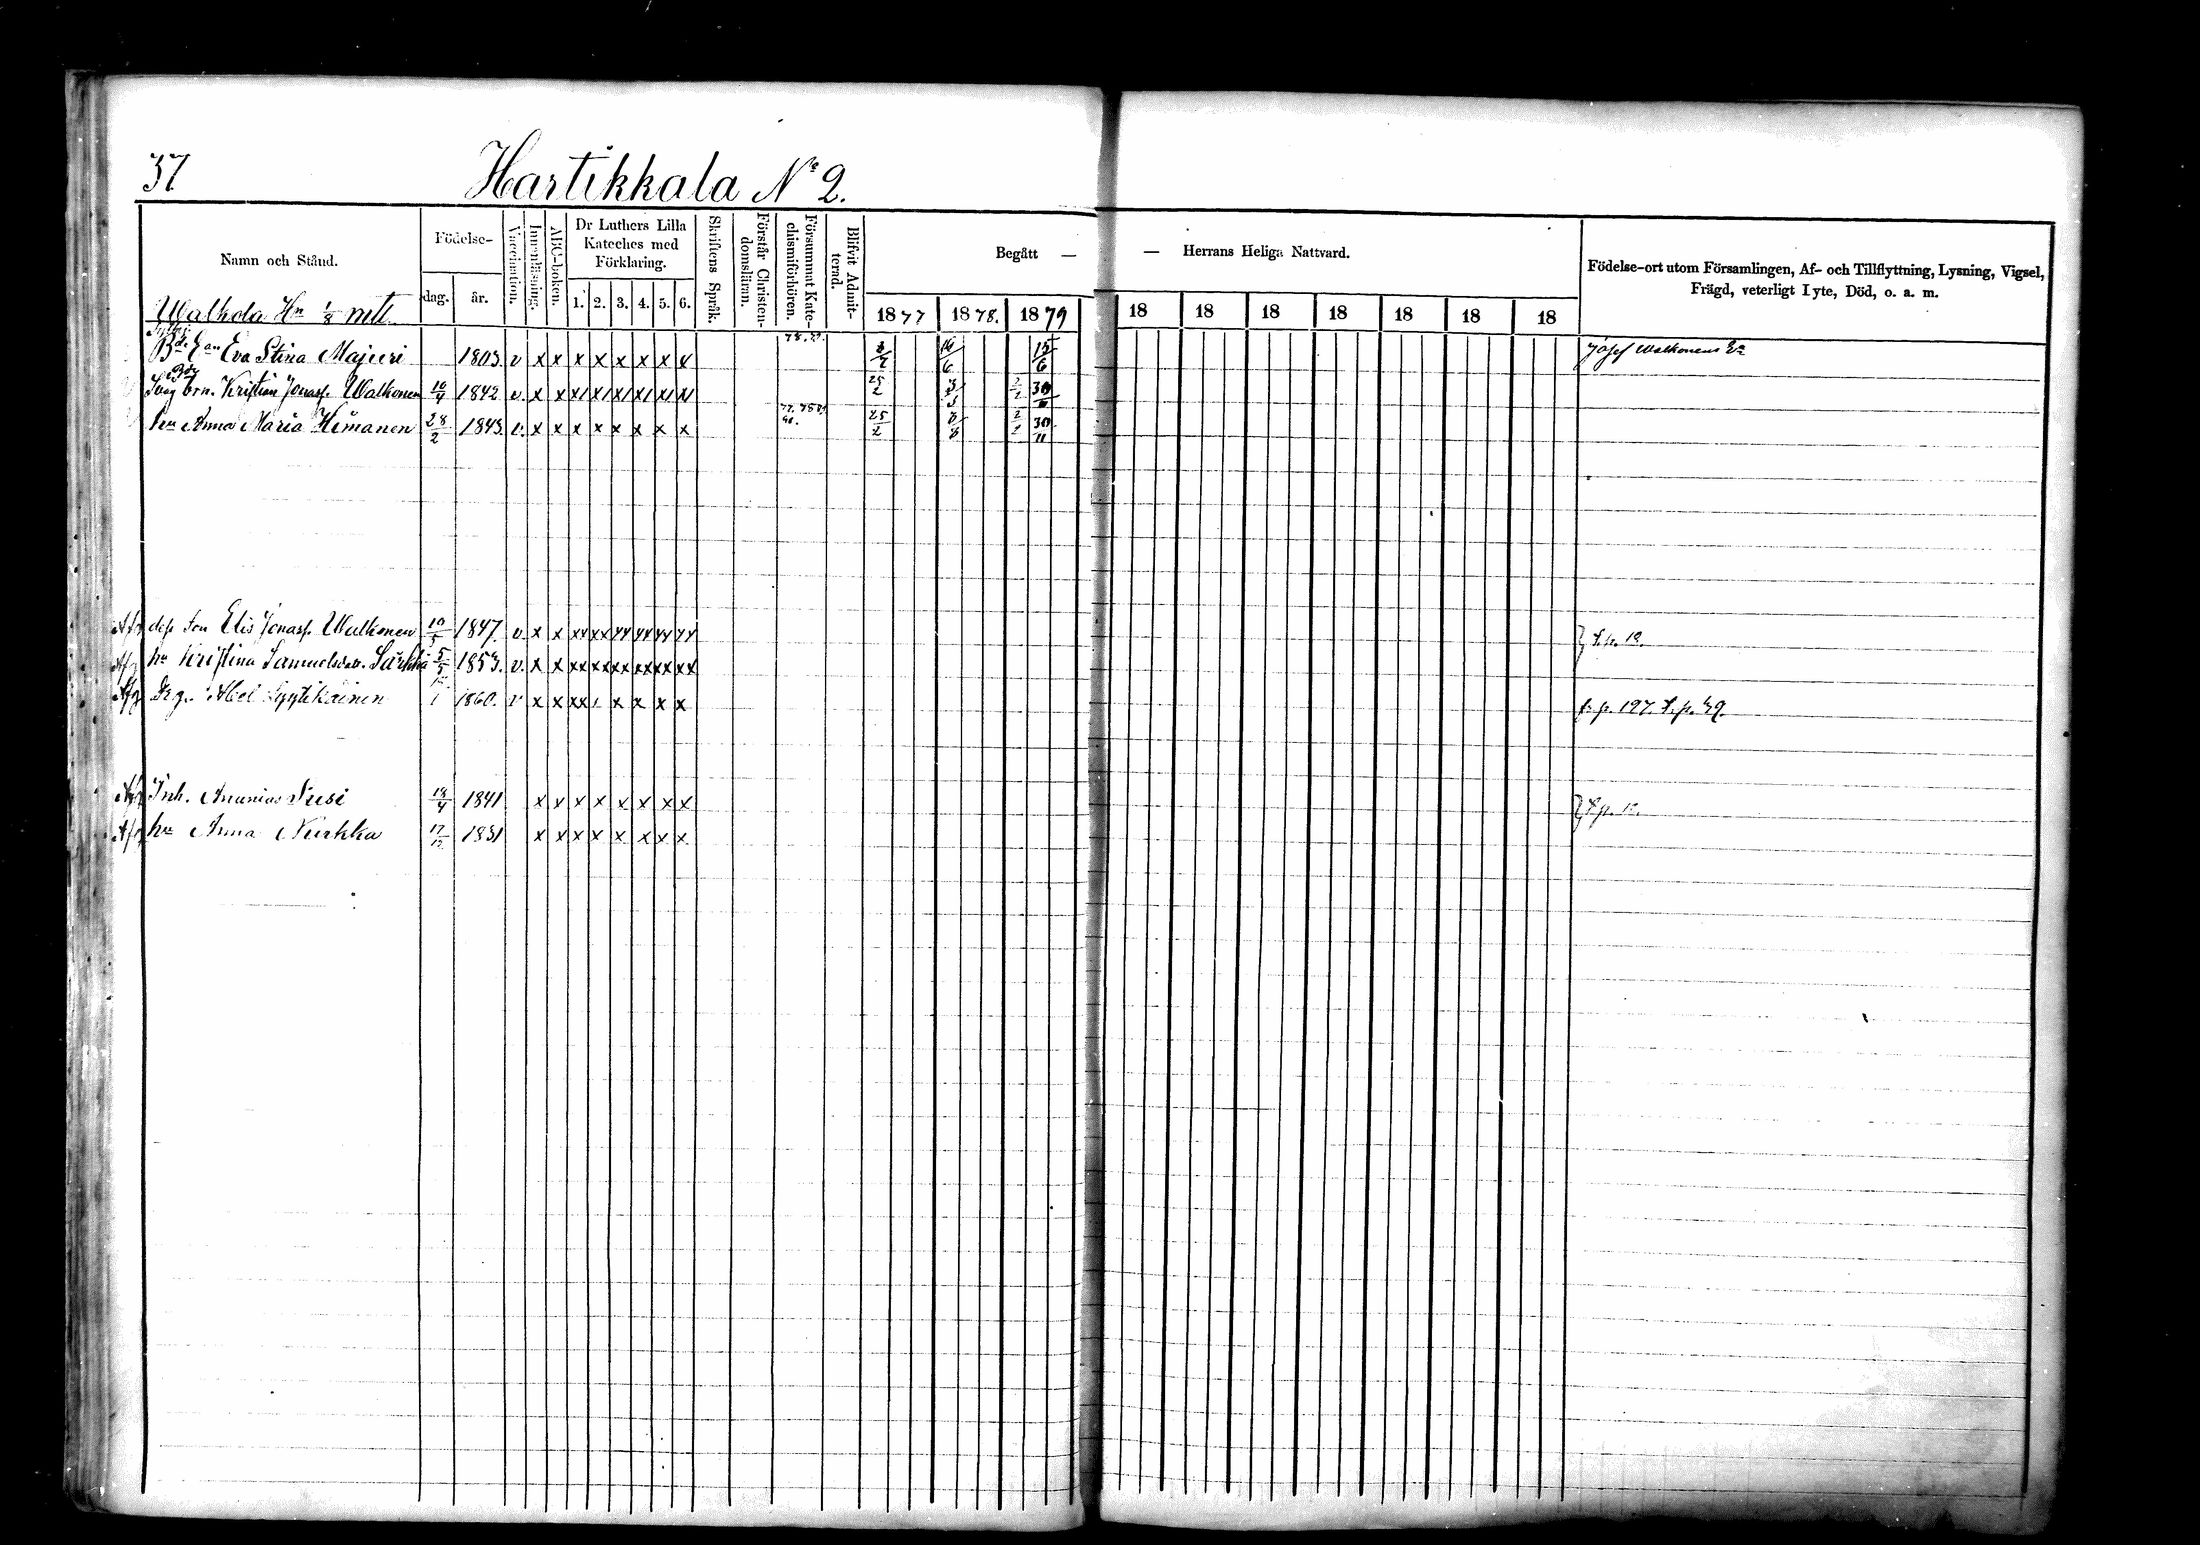 37 Hartikkala No 2.
Namn och Stånd. Födelse- dag. år. Vaccination. Innanläsning. ABC-boken. Dr Luthers Lilla Kateches med Förklaring. 1. 2. 3. 4. 5. 6. Skriftens Språk. Förstår Christendomsläran. Försummat Katechismiförhören. Blifvit Admitterad. Begått — — Herrans Heliga Nattvard. Födelse-ort utom Församlingen, Af- och Tillflyttning, Lysning, Vigsel, Frägd, veterligt Lyte, Död, o. a. m.
1877 1878. 1879 18 18 18 18 18 18 18
Walkola Hn 1/8 mtl
Eva Stina Majuri 1803 v x x x x x x x x 15/6 Josef Walkonens Ea
brn. Kristian Jonasf. Walkonen 1842 v x x 25/2 30/11
hu Anna Maria Himanen 28/2 1843 v. x x x x x x x x 25/2 30/11
Afg def son Elis Jonasf. Walkonen 1847. v. x x xx xx xx xx xx xx f. p. 12.
Afg hu Kristina Samuelsdotr. Särkkä 5/5 1853. v. x x xx xx xx xx xx xx
Afg Drg. Abel Lyytikäinen 1860. v x x x x x x f. p. 127. f. p. 49.
Afg Inh. Ananias Susi 18/4 1841 x x x x x x x x f. p. 12.
Afg hu Anna Nurkka 17/12 1831 x x x x x x x x